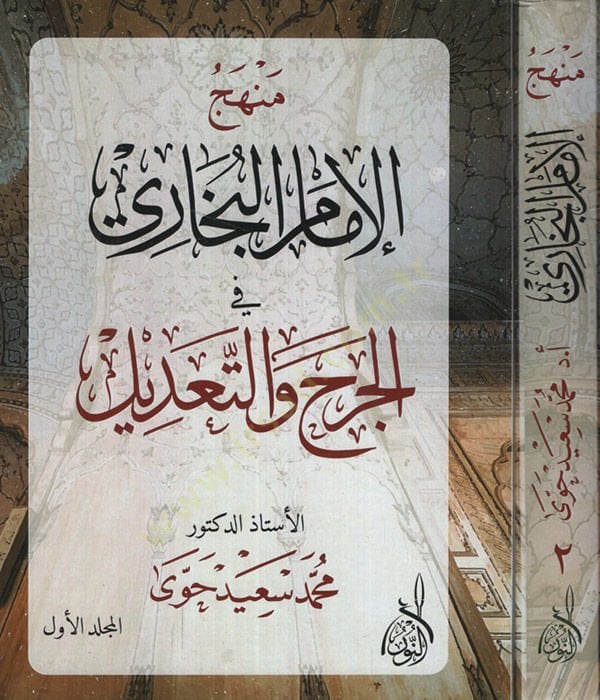 مَنْهَجُ
الإمَام البُخَارِيِّ
فِي
الجَرحِ وَالتَّعدِيلِ
الأستاذ الدكتور
مُحَمَّد سَعِيد حَوَّى
المجلد الأول
النُّور
مَنْهَجُ
الإمام البُخَارِيِّ
أ.د محمد سعيد حوى
٢
النُّور